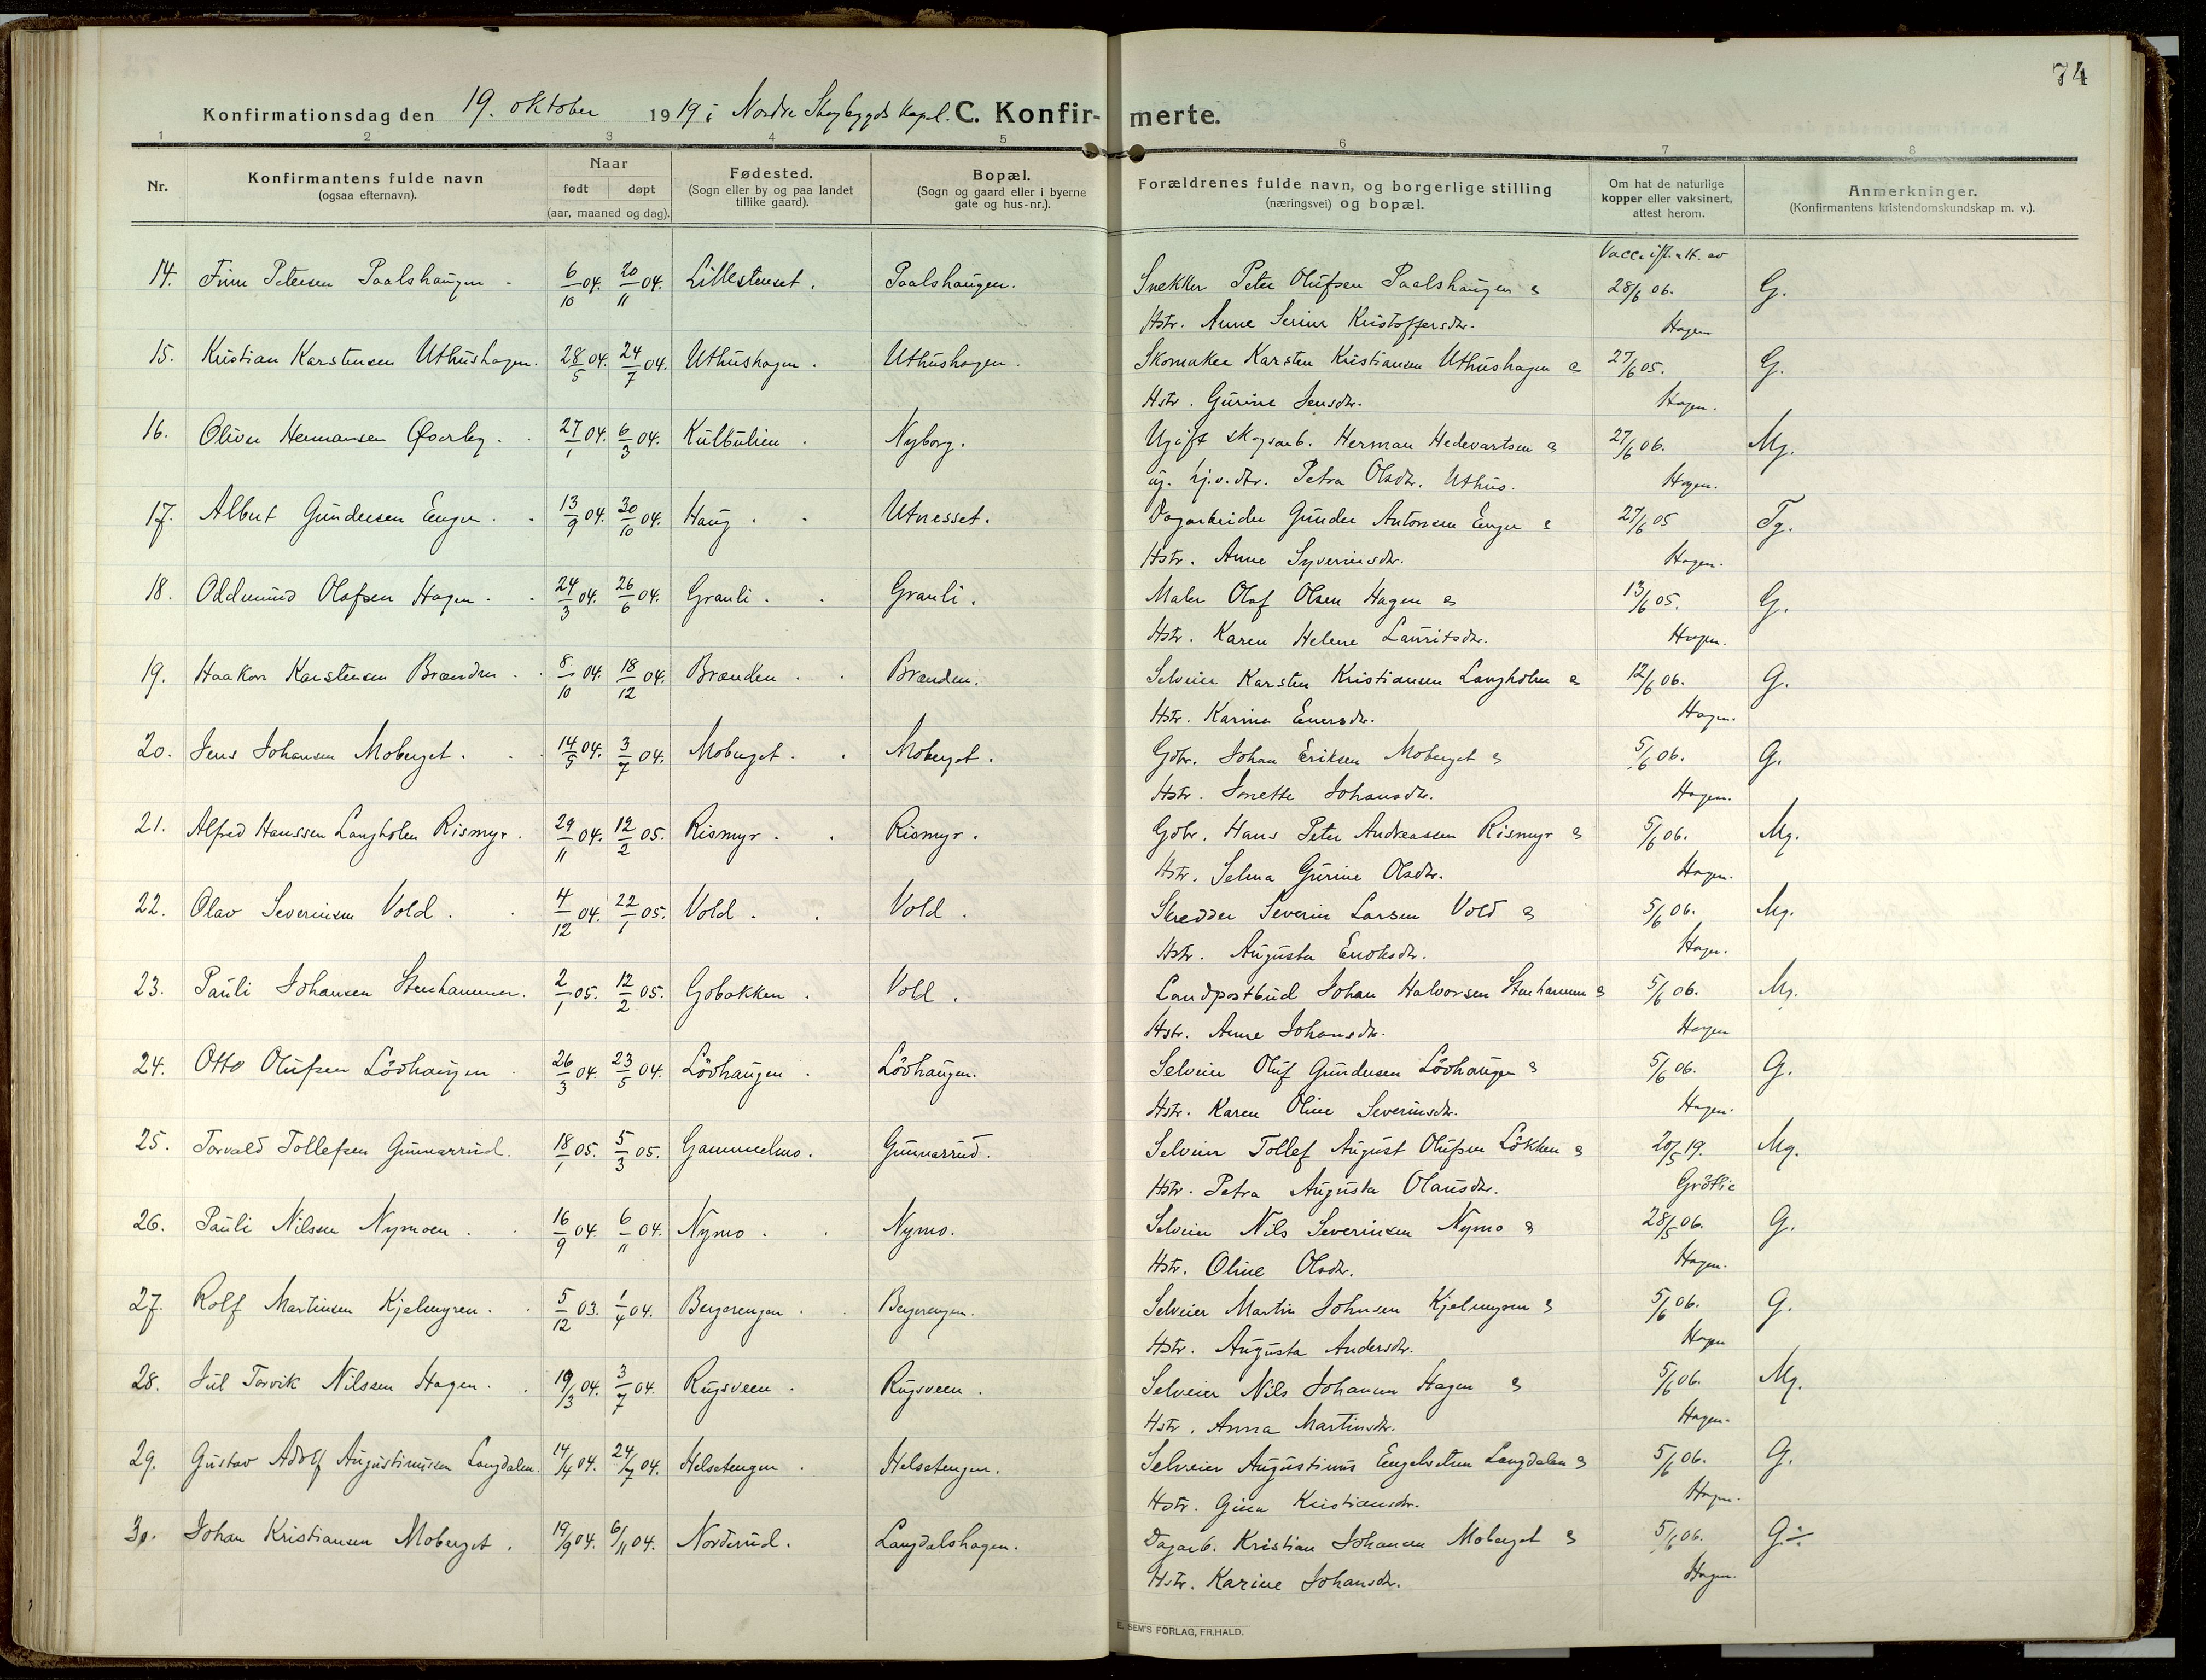 74
Konfirmationsdag den 19. oktober 1919 i Nordre Skogbygds kapel. C. Konfir- merte.
1 2 3 4 5 6 7 8
Nr. Konfirmantens fulde navn (ogsaa efternavn). Naar født døpt (aar, maaned og dag). Fødested. (Sogn eller by og paa landet tillike gaard). Bopæl. (Sogn og gaard eller i byerne gate og hus-nr.). Forældrenes fulde navn, og borgerlige stilling (næringsvei) og bopæl. Om hat de naturlige kopper eller vaksinert, attest herom. Anmerkninger. (Konfirmantens kristendomskundskap m. v.).
Vacc. ifl. att. av
14. Finn Petersen Paalshaugen. 6/10 04. 20/11 04. Lillestenset. Paalshaugen. Snekker Peter Olufsen Paalshaugen & 28/6 06. G.
Hstr. Anne Serine Kristoffersdtr. Hagen
15. Kristian Karstensen Uthushagen. 28/5 04. 24/7 04. Uthushagen. Uthushagen. Skomaker Karsten Kristiansen Uthushagen & 27/6 05. G.
Hstr. Gurine Jensdtr. Hagen.
16. Oliver Hermansen Øverby. 27/1 04. 6/3 04. Kulbulien. Nyborg. Ugift skogsarb. Herman Hedevartsen & 27/6 06. Mg.
ug. hj.v.dtr. Petra Olsdtr. Uthus. Hagen.
17. Albert Gundersen Enger. 13/9 04. 30/10 04. Haug. Utnesset. Dagarbeider Gunder Antonsen Enger & 27/6 05 Tg.
Hstr. Anne Syverinsdtr. Hagen.
18. Oddmund Olafsen Hagen. 24/3 04. 26/6 04. Granli. Granli. Maler Olaf Olsen Hagen & 13/6 05. G.
Hstr. Karen Helene Lauritsdtr. Hagen.
19. Haakon Karstensen Brænden. 8/10 04. 18/12 04. Brænden. Brænden. Selveier Karsten Kristiansen Langholen & 12/6 06. G.
Hstr. Karina Enersdtr. Hagen.
20. Jens Johansen Moberget. 14/5 04. 3/7 04. Moberget. Moberget. Gbr. Johan Eriksen Moberget & 5/6 06. G.
Hstr. Jonette Johansdtr. Hagen.
21. Alfred Hanssen Langholen Rismyr. 29/11 04. 12/2 05. Rismyr. Rismyr. Gbr. Hans Peter Andreassen Rismyr & 5/6 06. Mg.
Hstr. Selma Gurine Olsdtr. Hagen.
22. Olav Severinsen Vold. 4/12 04. 22/1 05. Vold. Vold. Skredder Severin Larsen Vold & 5/6 06. Mg.
Hstr. Augusta Enoksdtr. Hagen.
23. Pauli Johansen Stenhammer. 2/1 05. 12/2 05. Gobakken. Vold. Landpostbud Johan Halvorsen Stenhammer & 5/6 06. Mg.
Hstr. Anne Johansdtr. Hagen
24. Otto Olufsen Lövhaugen 26/3 04. 23/5 04. Lövhaugen. Lövhaugen. Selveier Oluf Gundersen Lövhaugen & 5/6 06. G.
Hstr. Karen Oline Severinsdtr. Hagen.
25. Torvald Tollefsen Gunnarrud. 18/1 05. 5/3 05. Gammelmo. Gunnarrud. Selveier Tollef August Olufsen Lökken & 20/5 19. Mg.
Hstr. Petra Augusta Olausdtr. Grötli
26. Pauli Nilssen Nymoen. 16/9 04. 6/11 04. Nymo. Nymo. Selveier Nils Severinsen Nymo & 28/5 06. G.
Hstr. Oline Olsdtr. Hagen.
27. Rolf Martinsen Kjelmyren. 5/12 03. 1/4 04. Bergerengen. Bergerengen. Selveier Martin Johnsen Kjelmyren & 5/6 06. G.
Hstr. Augusta Andersdtr. Hagen
28. Jul Torvik Nilssen Hagen. 19/3 04. 3/7 04. Rugsveen. Rugsveen. Selveier Nils Johansen Hagen & 5/6 06. Mg.
Hstr. Anna Martinsdtr. Hagen.
29. Gustav Adolf Augustinussen Langdalen. 14/4 04. 24/7 04. Helsetengen. Helsetengen. Selveier Augustinus Engelsetsen Langdalen & 5/6 06. G.
Hstr. Gina Kristiansdtr. Hagen.
30. Johan Kristiansen Moberget. 19/9 04. 6/11 04. Norderud. Langdalshagen. Dagarb. Kristian Johansen Moberget & 5/6 06. G÷
Hstr. Karine Johansdtr. Hagen.
E. SEM'S FORLAG, FR.HALD.